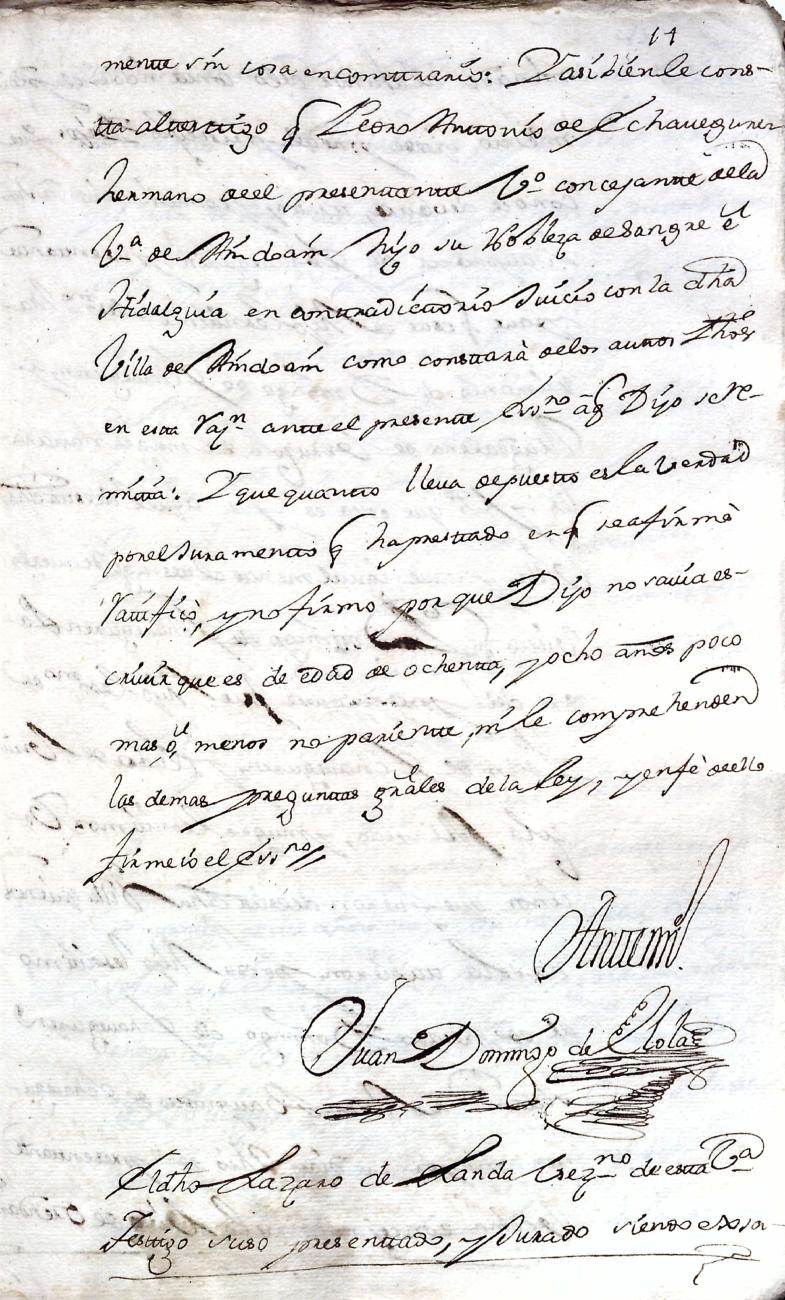 14
mente sin cosa en conttrario: Y asi bien le cons-
tta al testtigo q Pedro Anttonio de Echaveguren
hermano de el presenttantte Vº concejantte de la
Vª de Andoain hizo su Nobleza de Sangre è
Hidalguia en conttradicttorio Juicio con la dha
Villa de Andoain como consttarà de los auttos
en estta Razn antte el presentte Essno àq Dijo se Re-
mitia: Y que quantto lleva depuestto es la verdad
por el Juramentto q ha presttado en q se afirmò
Rattificò, y no firmo porque Dijo no savia es-
crivir que es de edad de ochentta, y ocho años poco
mas, ò menos no parientte, ni le comprehenden
las demas preguntas grales de la Ley, y en fè de ello
firme io el Essno
Antemi.
Juan Domingo de
El dho Lazaro de Landa Vezno de estta Vª
Testtigo suso presenttado, y Jurado siendo